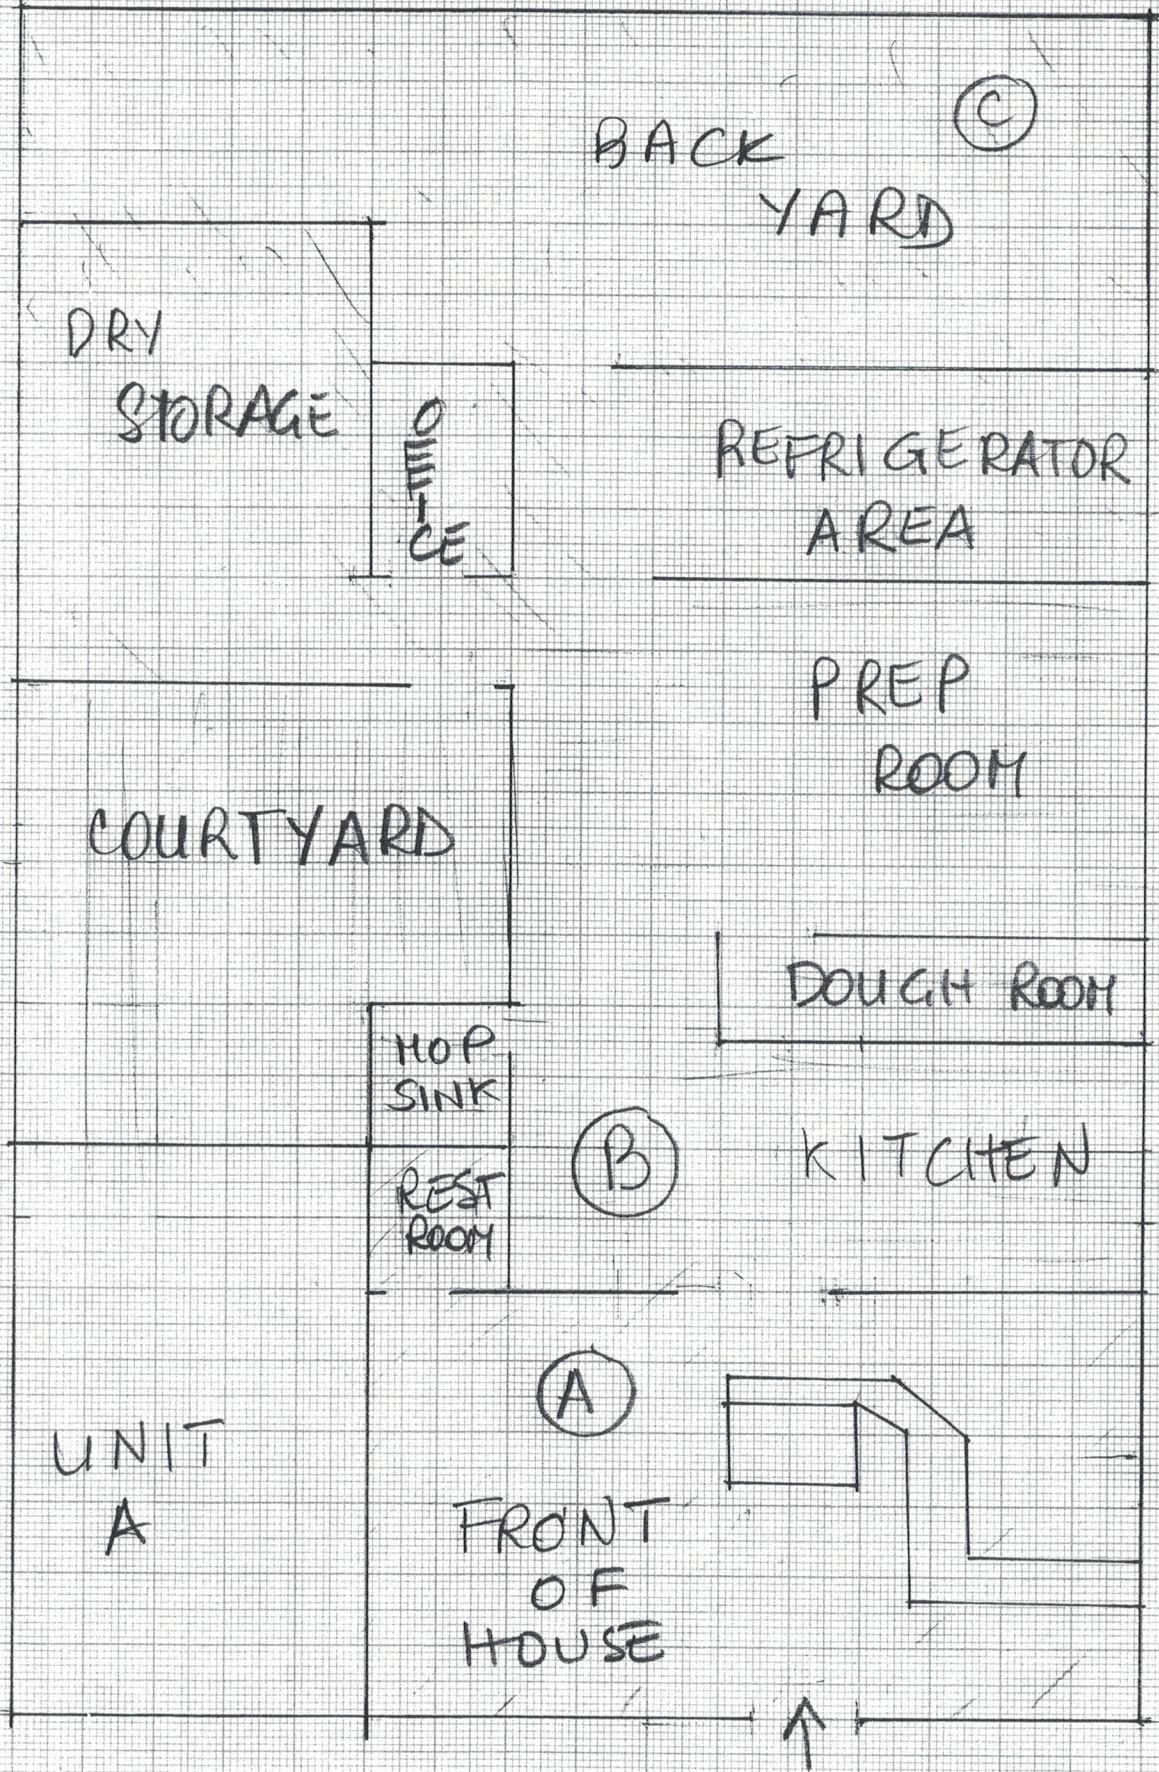 C
BACK
YARD
DRY
STORAGE
OFFICE
REFRIGERATOR
AREA
PREP
ROOM
COURTYARD
DOUGH ROOM
MOP
SINK
B
KITCHEN
REST
ROOM
A
UNIT
A
FRONT
OF
HOUSE